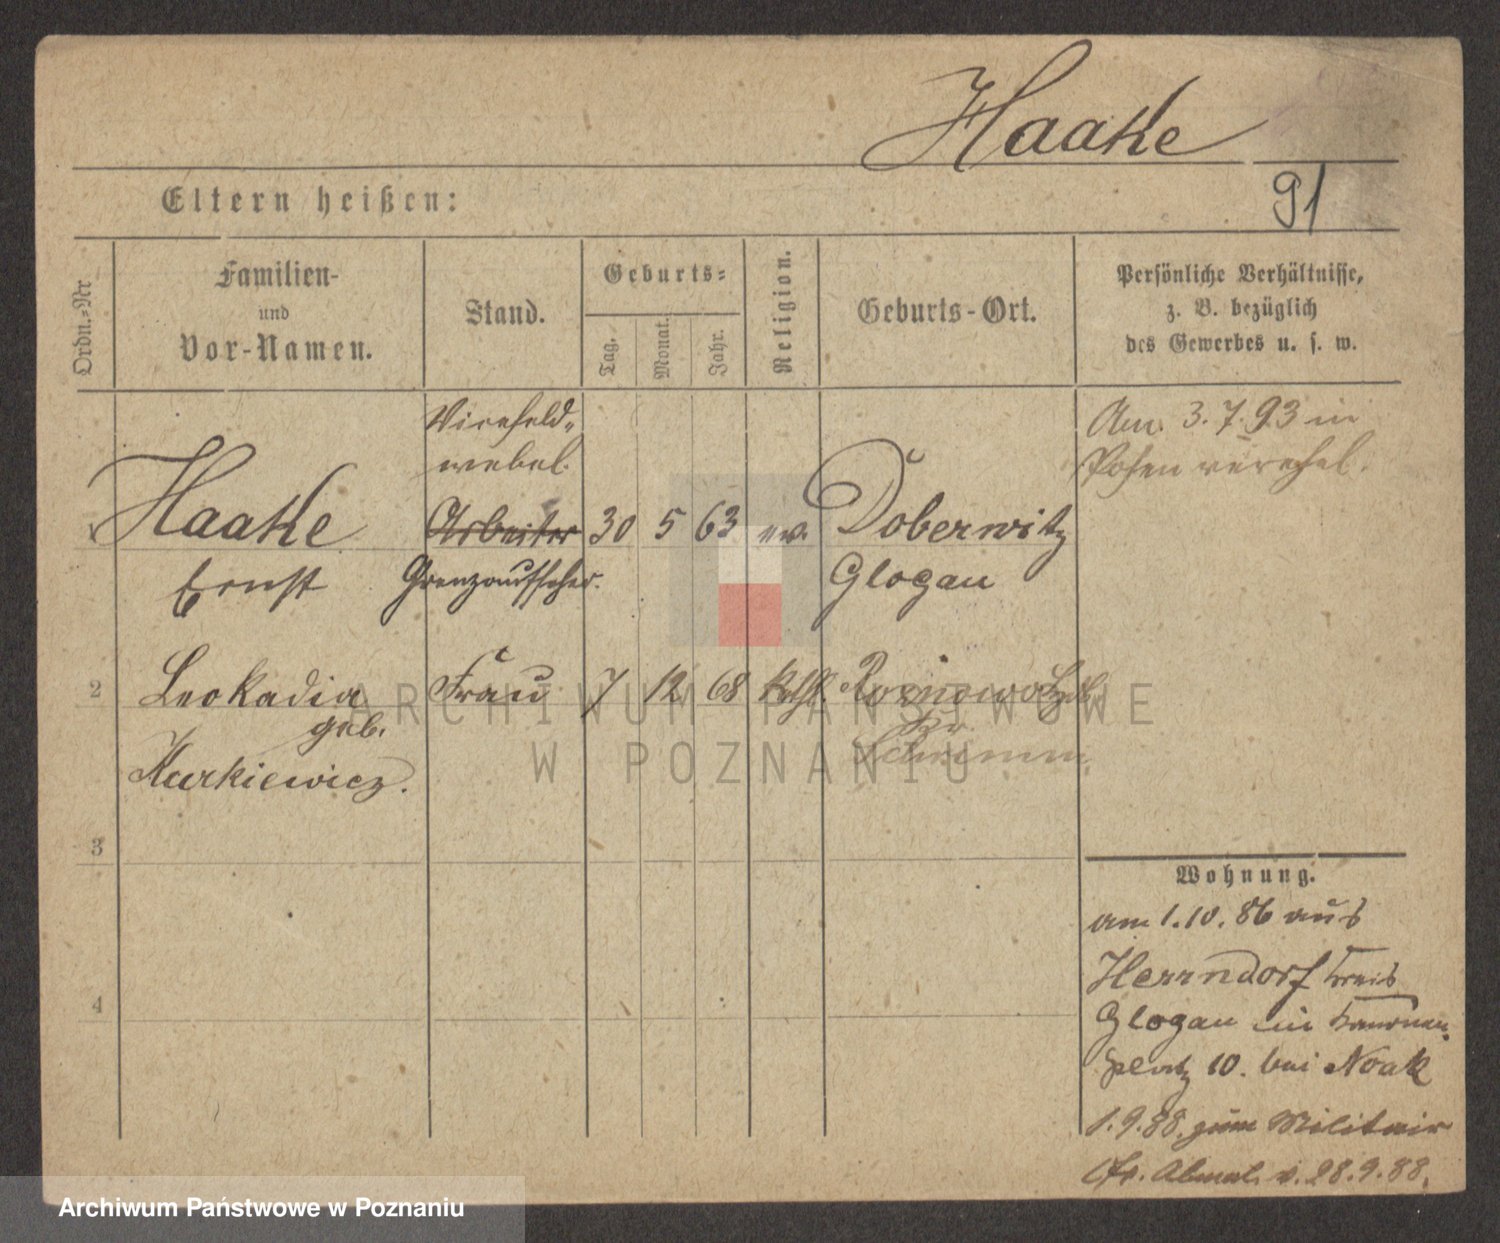 Haake
91
Eltern heißen:
Ordn.-Nr
Familien-
und
Vor-Namen.
Stand.
Geburts-
Tag.
Monat.
Jahr.
Religion.
Geburts-Ort.
Persönliche Verhältnisse,
z. B. bezüglich
des Gewerbes u. s. w.
Vicefeld-
webel.
Am 3.7.93 in
Posen verehel.
Haake Arbeiter 30 5 63 ev. Doberwitz
Ernst Grenzaufseher. Glogau
2 Leokadia Frau 7 12 68 kth.
geb. Kr.
Kurkiewicz. Schrimm
ARCHIWUM PAŃSTWOWE
W POZNANIU
3
4
Wohnung.
am 1.10.86 aus
Herrndorf Kreis
Glogau in Kanonen-
platz 10. bei Noak
1.9.88. zum Militair
v. 28.9.88.
Archiwum Państwowe w Poznaniu